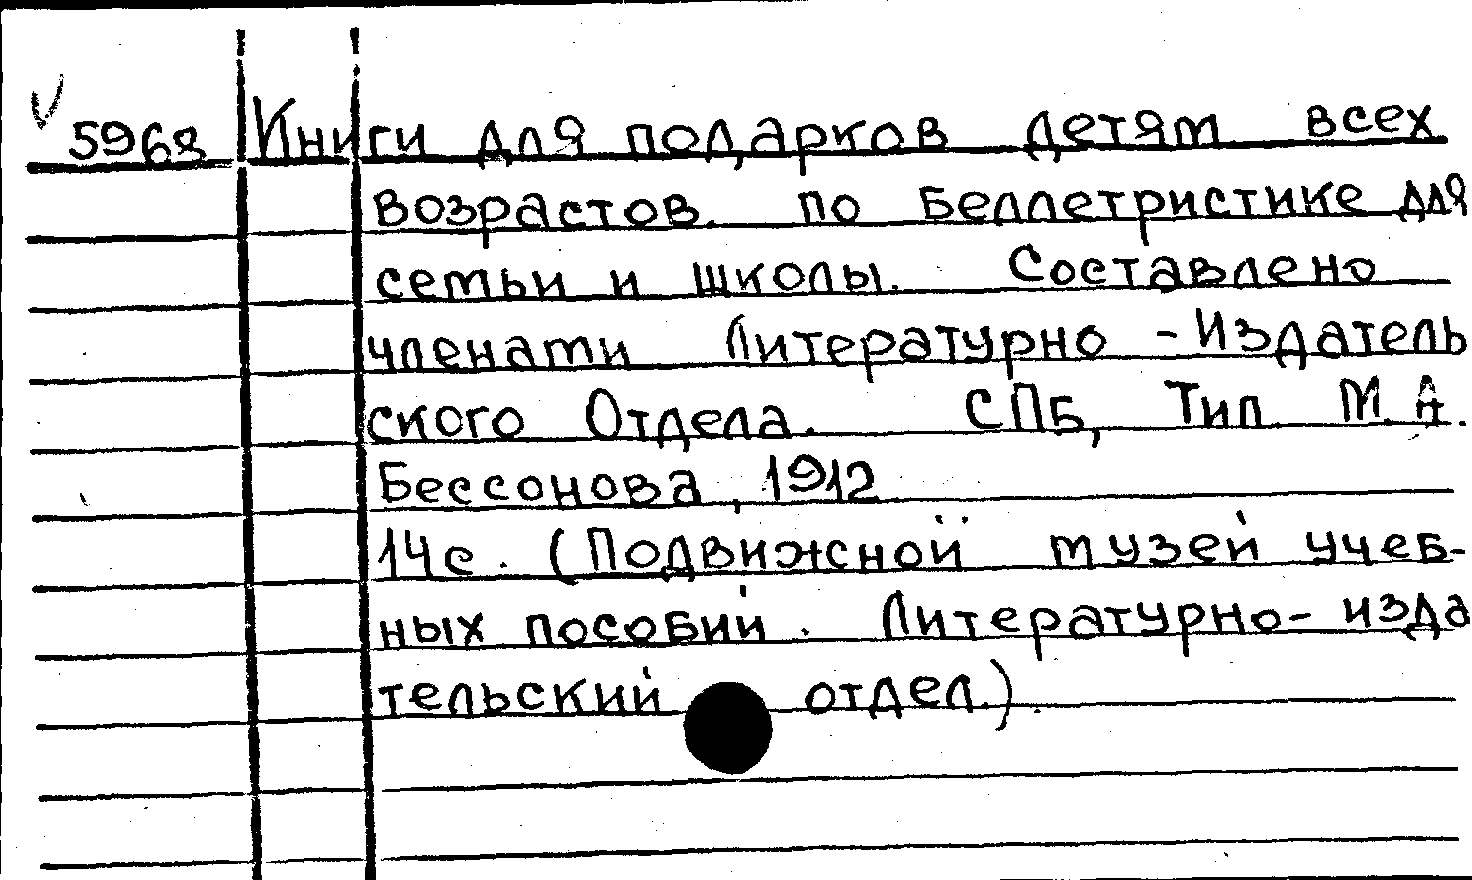 5968 Книги для подарков детям всех
возрастов. по Беллетристике для
семьи и школы. Составлено
членами Литературно - Издатель
ского Отдела. СПБ, Тип. М.А.
Бессонова, 1912
14с. (Подвижной музей учеб-
ных пособий. Литературно- изда
тельский отдел.).